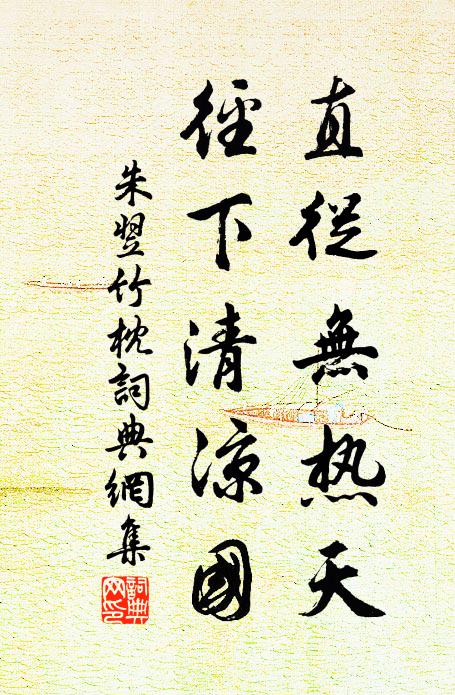 直從無热天
徑下清涼國
朱翌竹枕詞典網集
詞典
网印